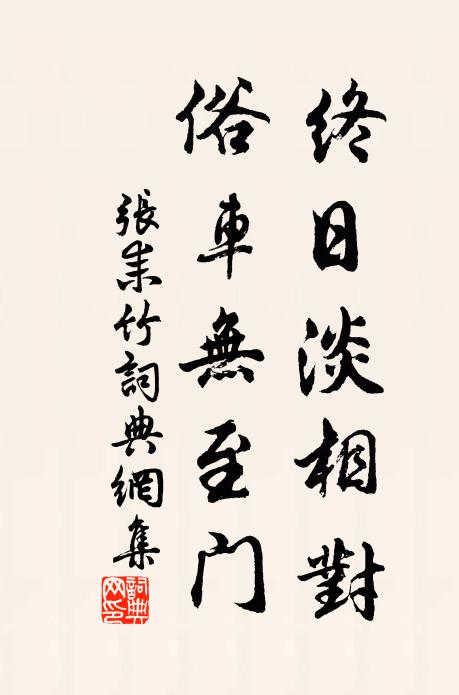 終日淡相對
俗車無至門
張耒竹詞典網集
詞典網印